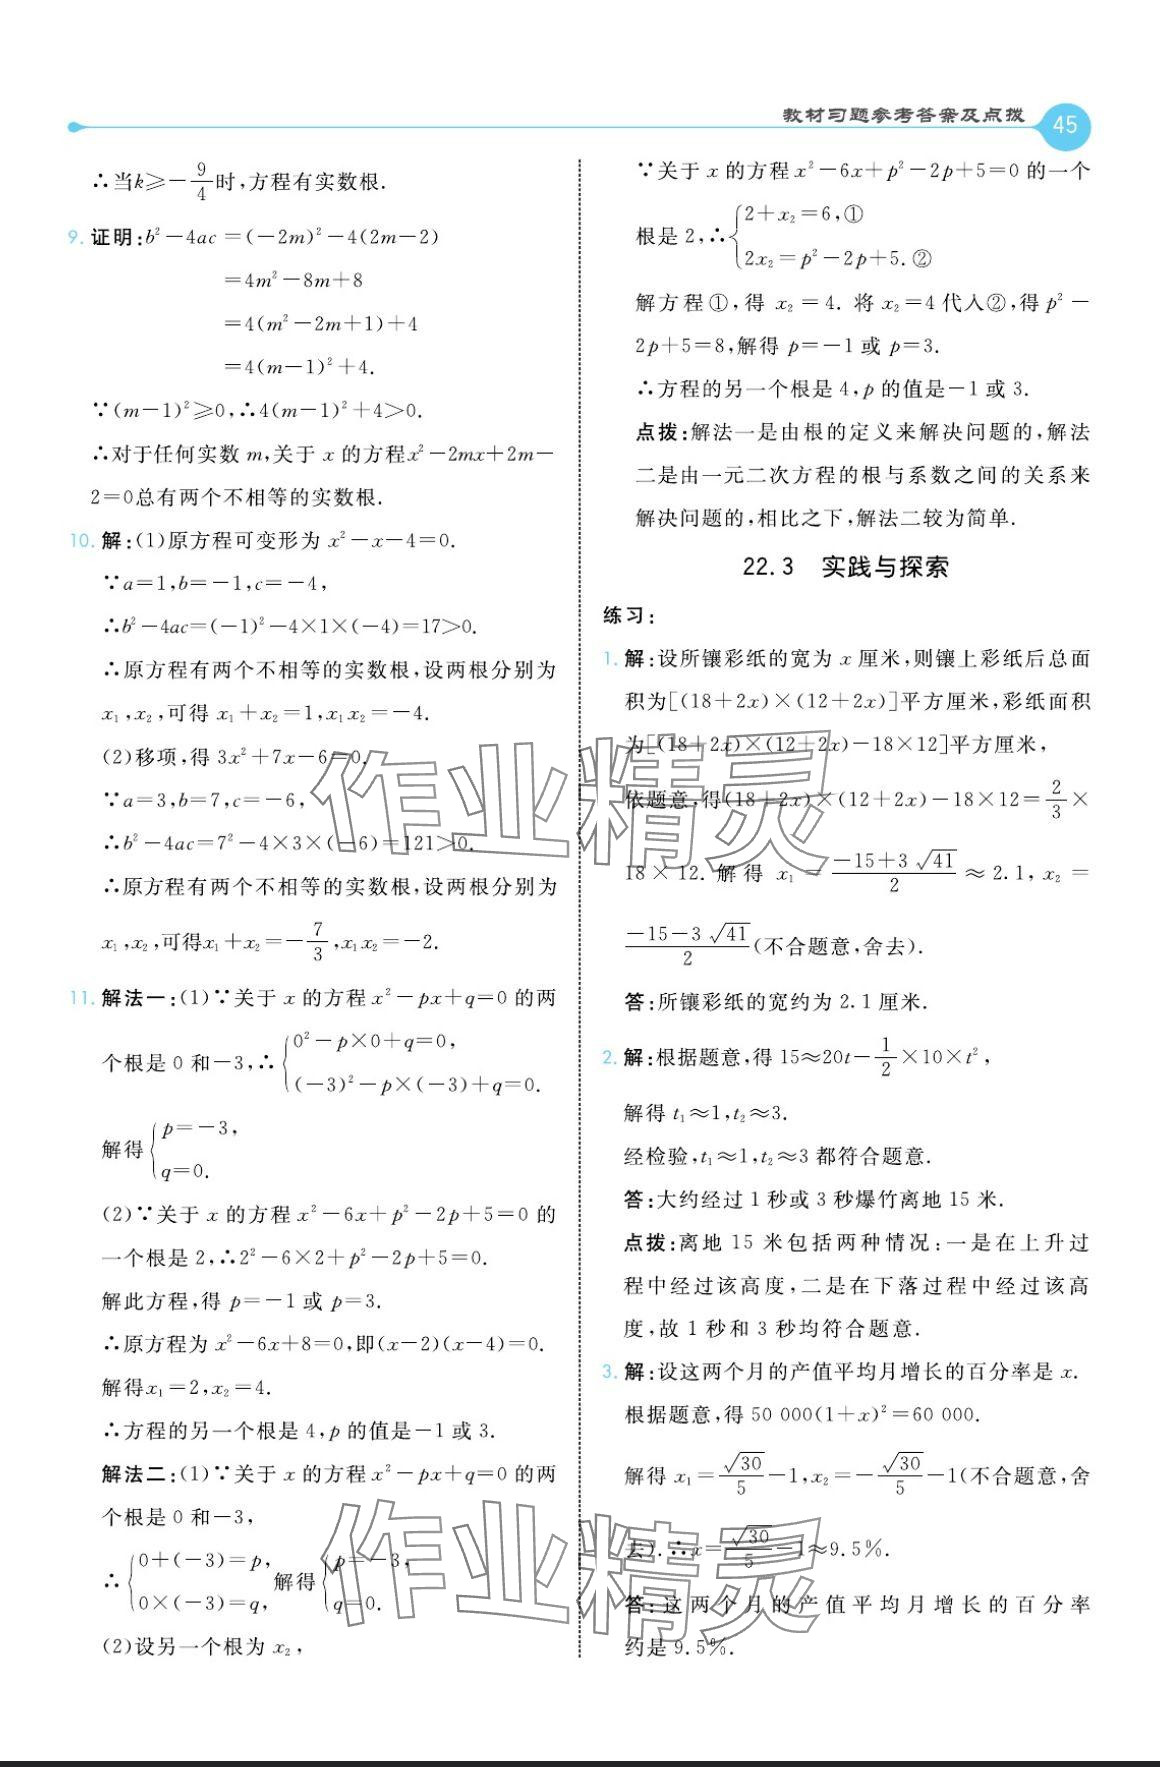 教材习题参考答案及点拨 45
∴当k≥-9/4时,方程有实数根.
9. 证明:b²-4ac=(-2m)²-4(2m-2)
=4m²-8m+8
=4(m²-2m+1)+4
=4(m-1)²+4.
∵(m-1)²≥0,∴4(m-1)²+4>0.
∴对于任何实数 m,关于 x 的方程x²-2mx+2m-
2=0总有两个不相等的实数根.
10. 解:(1)原方程可变形为 x²-x-4=0.
∵a=1,b=-1,c=-4,
∴b²-4ac=(-1)²-4×1×(-4)=17>0.
∴原方程有两个不相等的实数根,设两根分别为
x₁,x₂,可得 x₁+x₂=1,x₁x₂=-4.
(2)移项,得 3x²+7x-6=0.
∵a=3,b=7,c=-6,
∴b²-4ac=7²-4×3×(-6)=121>0.
∴原方程有两个不相等的实数根,设两根分别为
x₁,x₂,可得x₁+x₂=-7/3,x₁x₂=-2.
11. 解法一:(1)∵关于 x 的方程 x²-px+q=0 的两
个根是 0 和-3,∴{0²-p×0+q=0,
(-3)²-p×(-3)+q=0.
解得{p=-3,
q=0.
(2)∵关于 x 的方程 x²-6x+p²-2p+5=0 的
一个根是 2,∴2²-6×2+p²-2p+5=0.
解此方程,得 p=-1 或 p=3.
∴原方程为 x²-6x+8=0,即(x-2)(x-4)=0.
解得x₁=2,x₂=4.
∴方程的另一个根是 4,p 的值是-1 或 3.
解法二:(1)∵关于 x 的方程 x²-px+q=0 的两
个根是 0 和-3,
∴{0+(-3)=p, 0×(-3)=q, 解得{p=-3, q=0.
(2)设另一个根为 x₂,
∵关于 x 的方程 x²-6x+p²-2p+5=0 的一个
根是 2,∴{2+x₂=6,①
2x₂=p²-2p+5.②
解方程①,得 x₂=4. 将 x₂=4 代入②,得 p²-
2p+5=8,解得 p=-1 或 p=3.
∴方程的另一个根是 4,p 的值是-1 或 3.
点拨:解法一是由根的定义来解决问题的,解法
二是由一元二次方程的根与系数之间的关系来
解决问题的,相比之下,解法二较为简单.
22.3 实践与探索
练习:
1. 解:设所镶彩纸的宽为 x 厘米,则镶上彩纸后总面
积为[(18+2x)×(12+2x)]平方厘米,彩纸面积
为[(18+2x)×(12+2x)-18×12]平方厘米,
依题意,得(18+2x)×(12+2x)-18×12=2/3×
18×12. 解得 x₁=(-15+3√41)/2≈2.1,x₂=
(-15-3√41)/2(不合题意,舍去).
答:所镶彩纸的宽约为 2.1 厘米.
2. 解:根据题意,得 15≈20t-1/2×10×t²,
解得 t₁≈1,t₂≈3.
经检验,t₁≈1,t₂≈3 都符合题意.
答:大约经过 1 秒或 3 秒爆竹离地 15 米.
点拨:离地 15 米包括两种情况:一是在上升过
程中经过该高度,二是在下落过程中经过该高
度,故 1 秒和 3 秒均符合题意.
3. 解:设这两个月的产值平均月增长的百分率是 x.
根据题意,得 50 000(1+x)²=60 000.
解得 x₁=√30/5-1,x₂=-√30/5-1(不合题意,舍
去).∴x=√30/5-1≈9.5%.
答:这两个月的产值平均月增长的百分率
约是 9.5%.
作业精灵
作业精灵